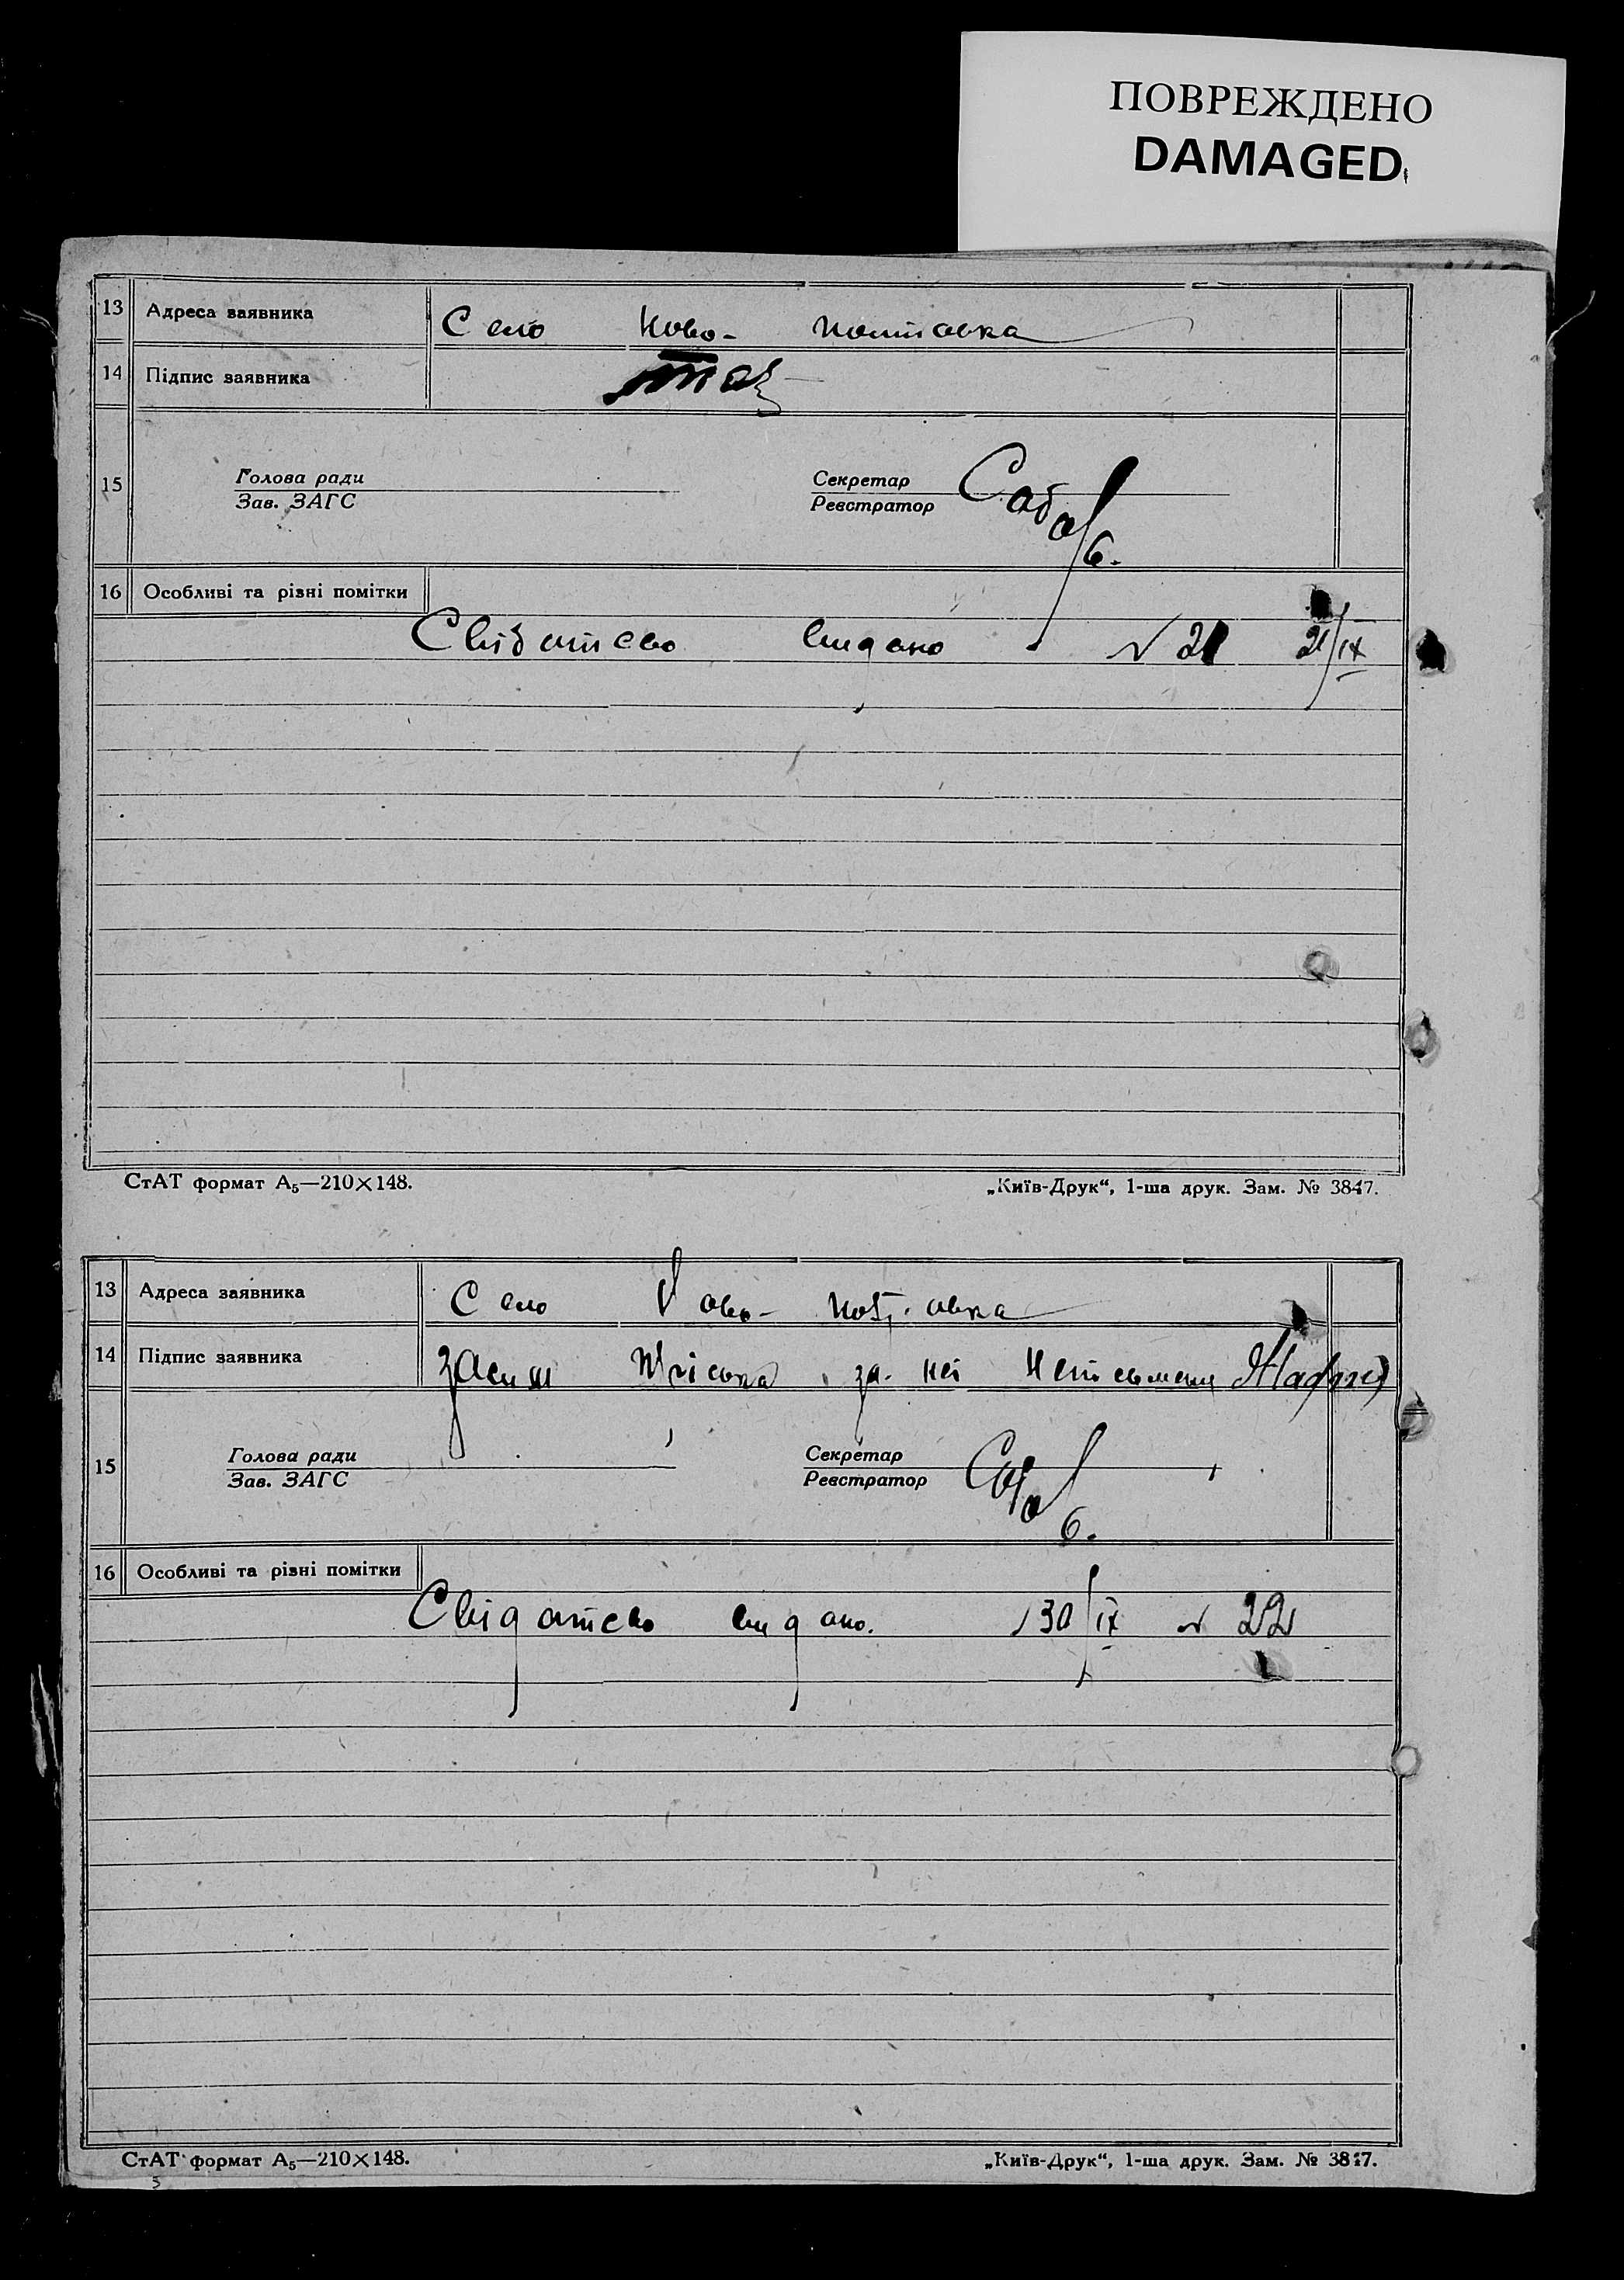 ПОВРЕЖДЕНО
DAMAGED
13 Адреса заявника Село Ново-Полтавка
14 Підпис заявника
Голова ради Секретар
15
Зав. ЗАГС Реєстратор
16 Особливі та різні помітки
Свідотство видано № 21 21/IX
СтАТ формат А₅—210×148. „Київ-Друк“, 1-ша друк. Зам. № 3847.
13 Адреса заявника Село Ново-
14 Підпис заявника за неї
Голова ради Секретар
15
Зав. ЗАГС Реєстратор
16 Особливі та різні помітки
Свідотство видано. 30/IX № 22
СтАТ формат А₅—210×148. „Київ-Друк“, 1-ша друк. Зам. № 3847.